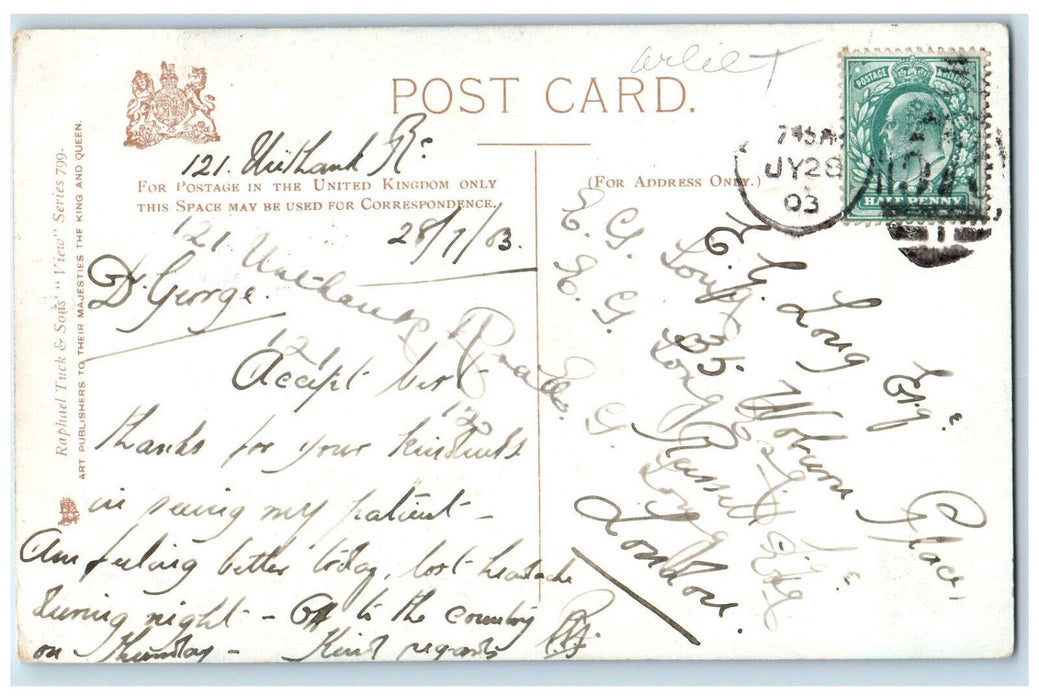 POST CARD.
121. Unthank Rd
FOR POSTAGE IN THE UNITED KINGDOM ONLY
THIS SPACE MAY BE USED FOR CORRESPONDENCE.
28/7/03.
121.
Dr George.
Accept best
thanks for your kindness
in seeing my patient –
Am feeling better today, lost headache
during night – Off to the country
on Thursday – Kind regards
(FOR ADDRESS ONLY.)
E. G. Long Esqre
35 Woburn Place
Russell Sq
London.
E. G. Long
E. G. Long
E. G. Long
POSTAGE & REVENUE
HALF PENNY
7 45 A
JY 28
03
Raphael Tuck & Sons' "View" Series 799.
ART PUBLISHERS TO THEIR MAJESTIES THE KING AND QUEEN.